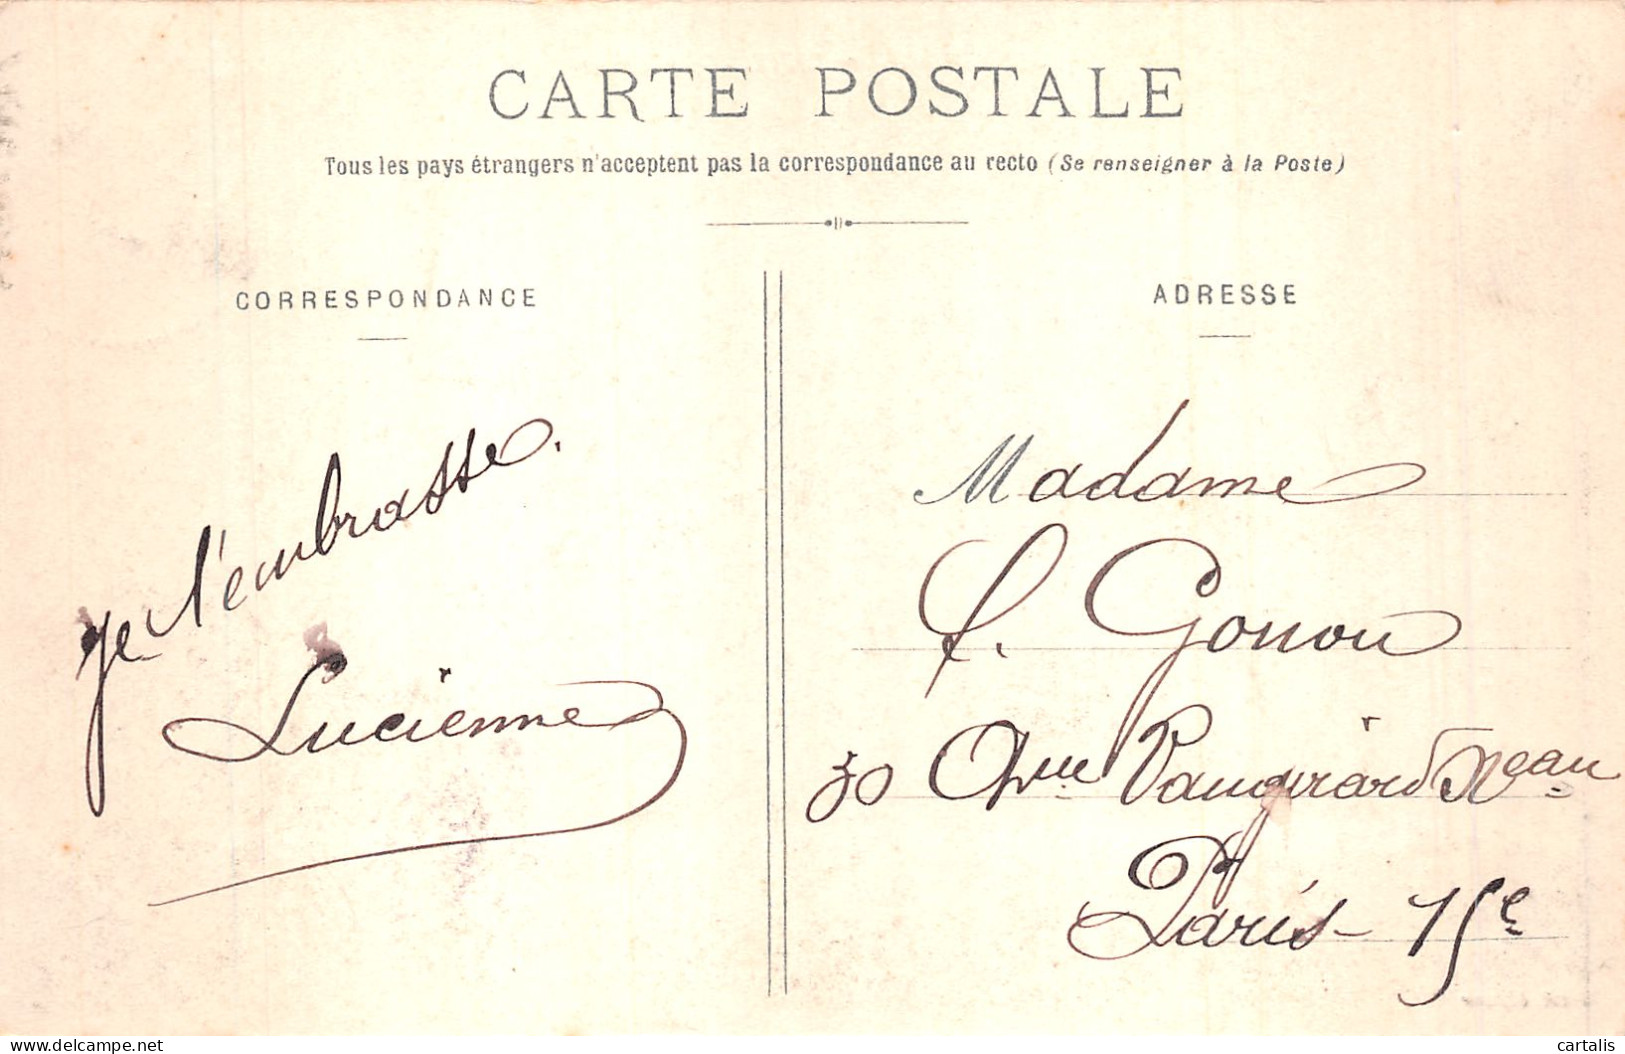 CARTE POSTALE
Tous les pays étrangers n'acceptent pas la correspondance au recto (Se renseigner à la Poste)
CORRESPONDANCE
ADRESSE
Je t'embrasse.
Lucienne
Madame
L. Gonon
30 Que Vaugirard
Paris - 15e
delcampe.net
cartalis